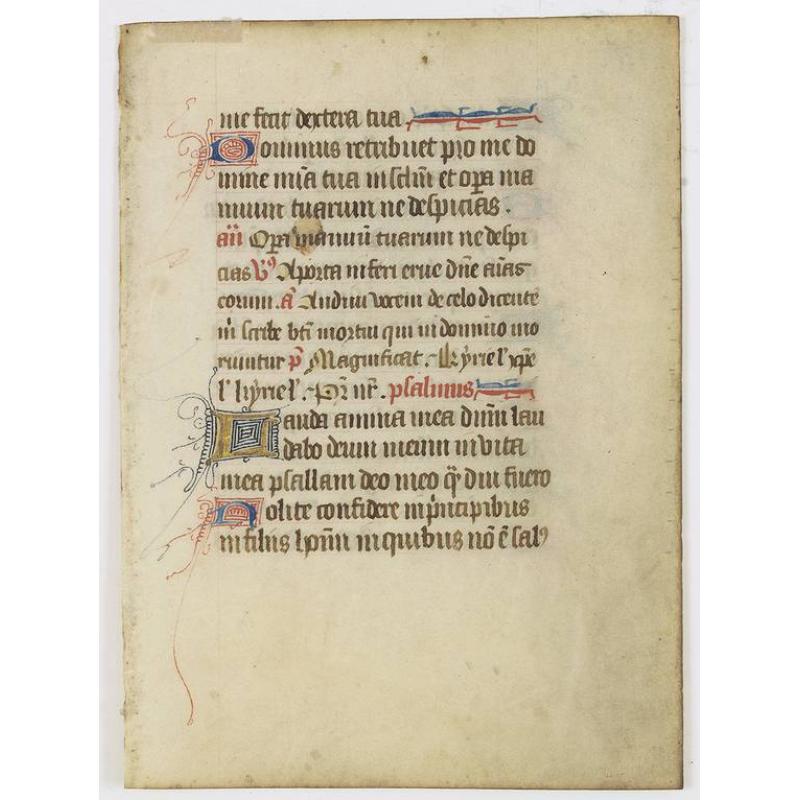 me fecit dextera tua
Dominus retribuet pro me do
mine mi͞a tua in sclm̄ et oꝑa ma
nuum tuarum ne despicias.
an̄ Oꝑa manuū tuarum ne despi
cias V⁹ Aporta inferi erue dn̄e aīas
eorum. a̅ Audiui vocem de celo dicentē
m̄ scribe bt̄i mortui qui in domino mo
riuntur p̄ Magnificat. kyriel' xp̄e
l' kyriel'. Pr̄ nr̄. psalmus
Lauda anima mea dn̄m lau
dabo deum meum in vita
mea psallam deo meo qͣ diu fuero
Nolite confidere in pͥncipibus
in filiis hoīm in quibus nō ē sal⁹